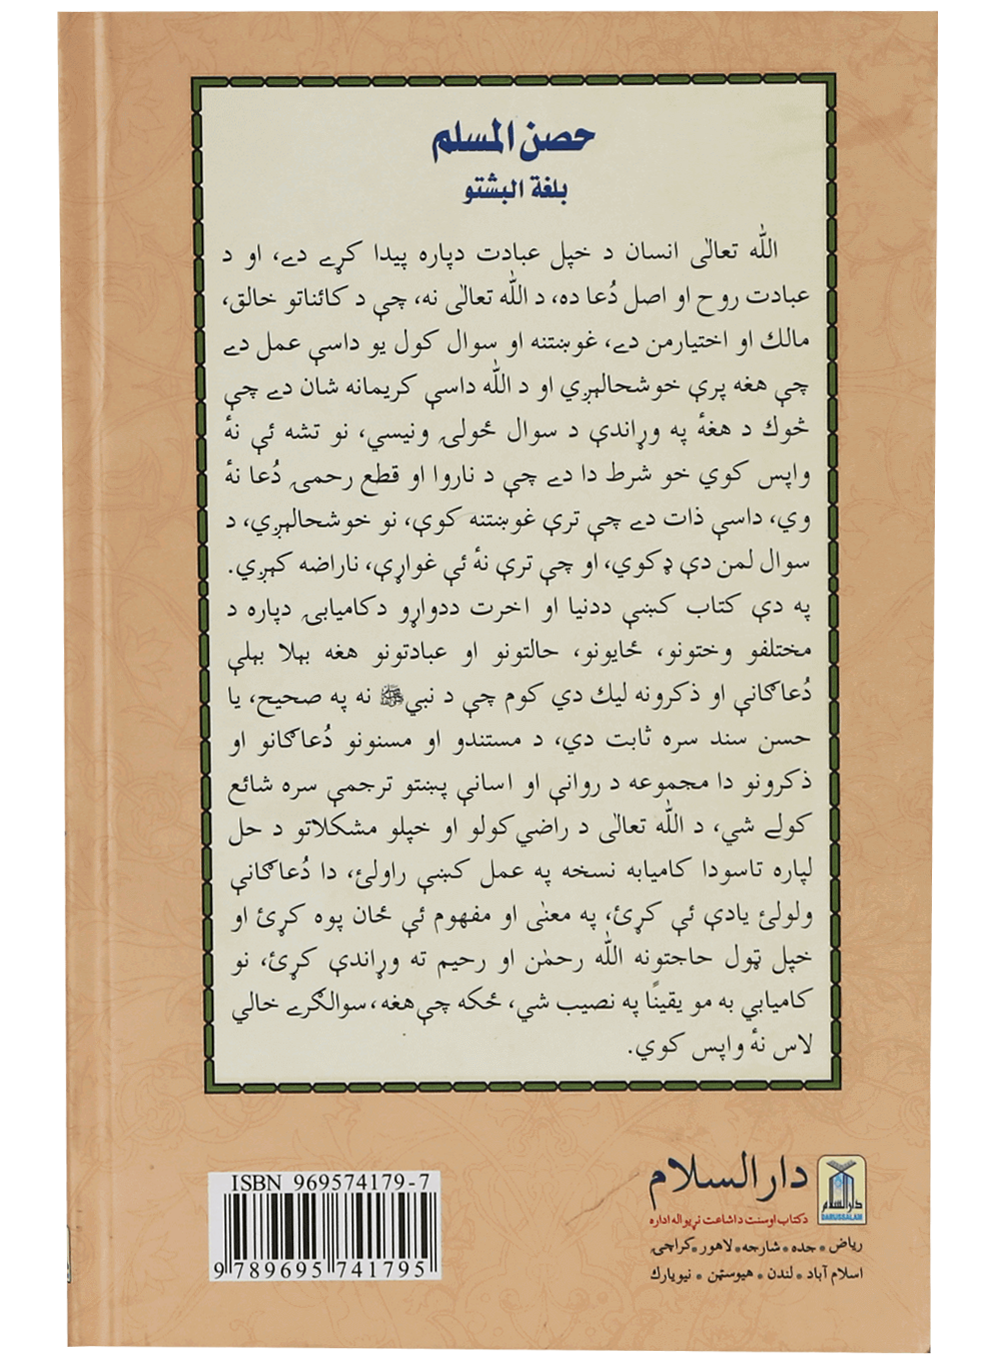 حصن المسلم
بلغة البشتو
الله تعالٰی انسان د خپل عبادت دپاره پیدا کړے دے، او د
عبادت روح او اصل دُعا ده، د الله تعالٰی نه، چې د کائناتو خالق،
مالك او اختیارمن دے، غوښتنه او سوال کول یو داسې عمل دے
چې هغه پرې خوشحالېږي او د الله داسې کریمانه شان دے چې
څوك د هغهٔ په وړاندې د سوال ځولۍ ونیسي، نو تشه ئې نهٔ
واپس کوي خو شرط دا دے چې د ناروا او قطع رحمۍ دُعا نهٔ
وي، داسې ذات دے چې ترې غوښتنه کوې، نو خوشحالېږي، د
سوال لمن دې ډکوي، او چې ترې نهٔ ئې غواړې، ناراضه کېږي.
په دې کتاب کښې ددنیا او اخرت ددواړو دکامیابۍ دپاره د
مختلفو وختونو، ځایونو، حالتونو او عبادتونو هغه بېلا بېلې
دُعاګانې او ذکرونه لیك دي کوم چې د نبيﷺ نه په صحیح، یا
حسن سند سره ثابت دي، د مستندو او مسنونو دُعاګانو او
ذکرونو دا مجموعه د روانې او اسانې پښتو ترجمې سره شائع
کولے شي، د الله تعالٰی د راضي کولو او خپلو مشکلاتو د حل
لپاره تاسودا کامیابه نسخه په عمل کښې راولئ، دا دُعاګانې
ولولئ یادې ئې کړئ، په معنٰی او مفهوم ئې ځان پوه کړئ او
خپل ټول حاجتونه الله رحمٰن او رحیم ته وړاندې کړئ، نو
کامیابي به مو یقینًا په نصیب شي، ځکه چې هغه، سوالګرے خالي
لاس نهٔ واپس کوي.
دار السلام
دکتاب اوسنت داشاعت نړیواله اداره
ریاض • جده • شارجه • لاهور • کراچۍ
اسلام آباد • لندن • هیوسټن • نیویارك
دار السلام
DARUSSALAM
ISBN 969574179-7
9 789695 741795